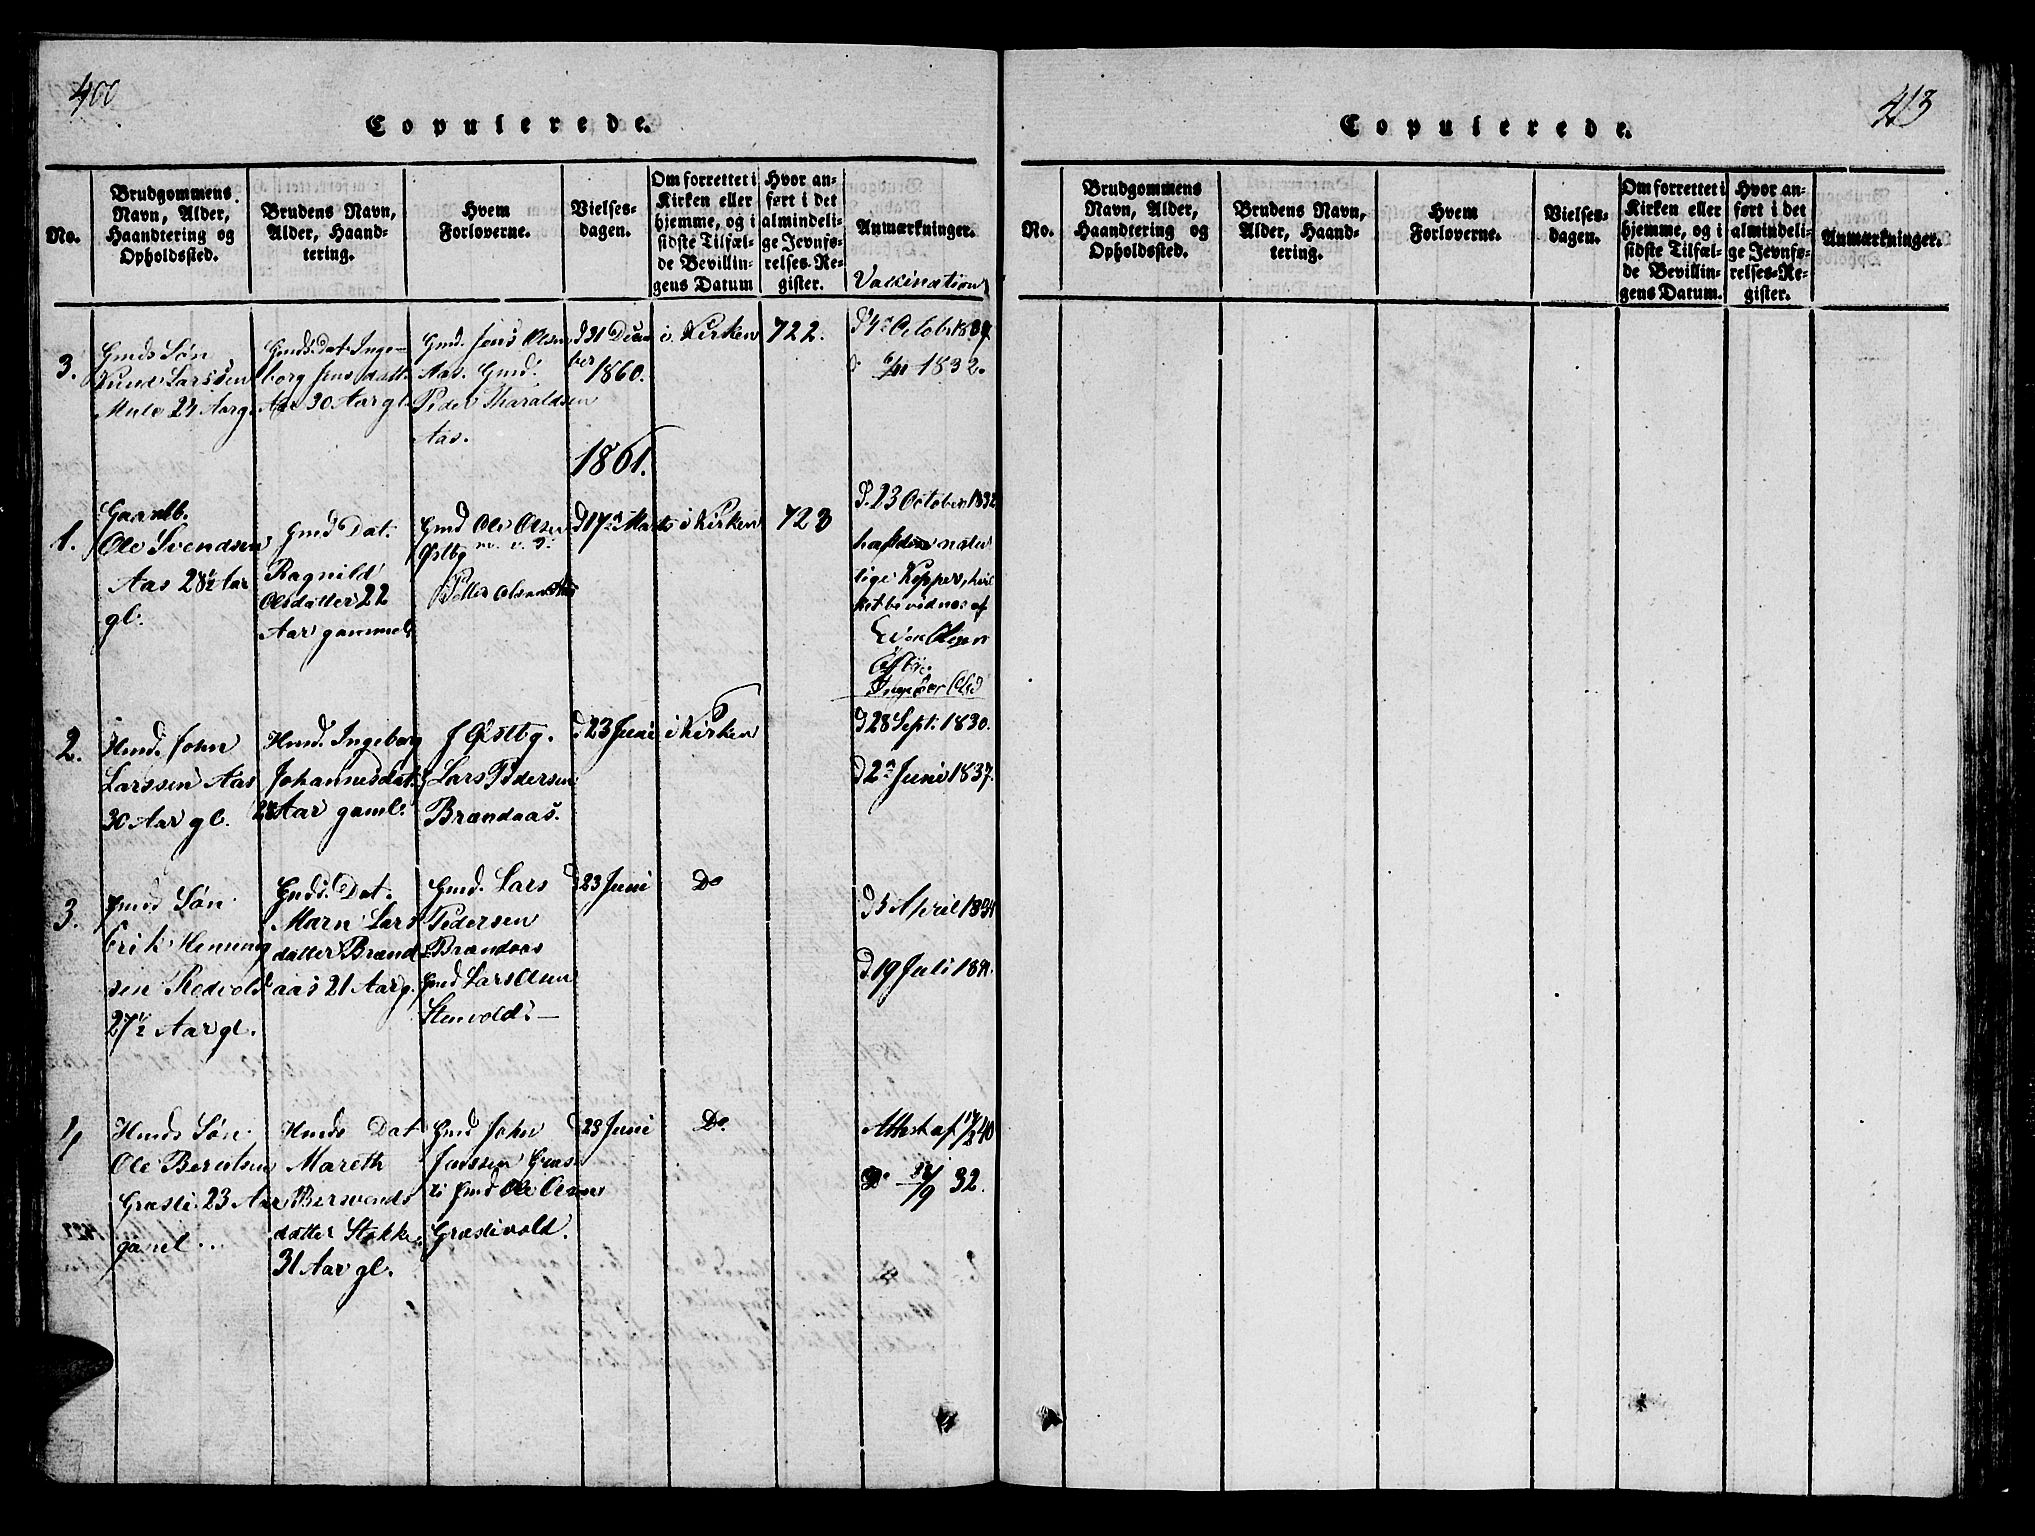 400
Copulerede.
No.
Brudgommens
Navn, Alder,
Haandtering og
Opholdssted.
Brudens Navn,
Alder, Haand-
tering.
Hvem
Forloverne.
Vielses-
dagen.
Om forrettet i
Kirken eller
hjemme, og i
sidste Tilfæl-
de Bevillin-
gens Datum
Hvor an-
ført i det
almindeli-
ge Jevnfø-
relses-Re-
gister.
Anmærkninger.
Vakination
3.
Gmds Søn
Knud Larssen
Mule 24 Aarg.
Gmds. Dat. Inge-
borg Jens datt.
Aas 30 Aar gl.
Gmd. Jens Olsen
Aas. Gmd.
Peder Tharaldsen
Aas.
d 31 Decem
ber
1860.
i Kirken
722.
October
6/11 1832.
1861.
1.
Gaardb.
Ole Svendsen
Aas 28½ Aar
gl.
Gmd Dat.
Ragnild
Olsdatter 22
Aar gammel
Gmd Ole Olsen
Østby
Petter Olsen Aas
d 17de Marts
i Kirken
723
d. 23 October 1832
hafde natur
lige Kopper, hvil
ket bevidnes af
Olsen
2.
Hmd. John
Larssen Aas
30 Aar gl.
Hmd. Ingeborg
Johannesdat.
28 Aar gaml.
J Østby.
Lars Pedersen
Brændaas.
d 23 Juni
i Kirken
d 28 Sept. 1830.
d 2n Juni 1837.
3.
Gmds Søn
Erik Henning
sen Rodvold
27½ Aar gl.
Gmds. Dat.
Marn Lars
datter Brænd
aas 21 Aar g.
Gmd. Lars
Pedersen
Brændaas
Gmd Lars Olsen
Stenvold
d 23 Juni
Do
d 5 April 1834
d. 19 Juli
4
Hmds Søn
Ole Berntsen
Græsli 23 Aar
gaml
Hmds Dat
Mareth
datter Stokke
31 Aar gl.
Gmd John
Jonssen Græs
li Gmd Ole Olsen
Græslivold.
d 23 Juni
Do.
Attest af
32.
413
Copulerede.
No.
Brudgommens
Navn, Alder,
Haandtering og
Opholdssted.
Brudens Navn,
Alder, Haand-
tering.
Hvem
Forloverne.
Vielses-
dagen.
Om forrettet i
Kirken eller
hjemme, og i
sidste Tilfæl-
de Bevillin-
gens Datum.
Hvor an-
ført i det
almindeli-
ge Jevnfø-
relses-Re-
gister.
Anmærkninger.